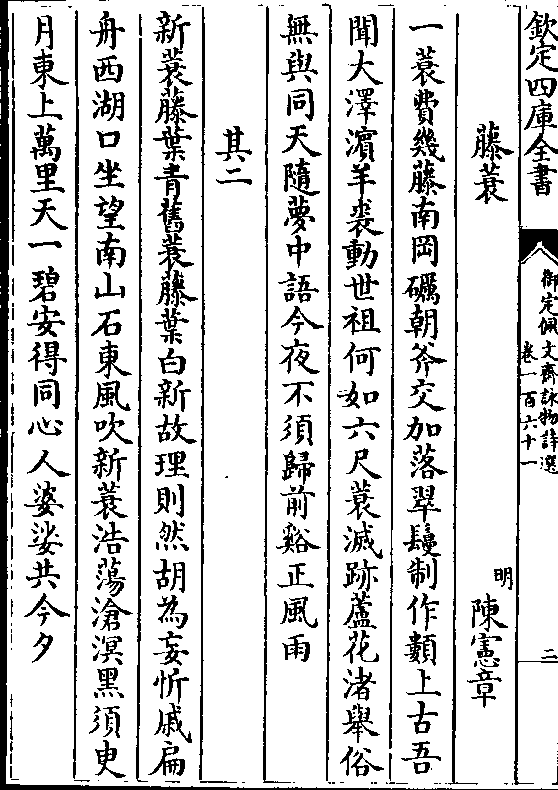 欽定四庫全書
御定佩文齋詠物詩選
卷一百六十一
三
藤蓑
明
陳憲章
一蓑費幾藤南岡礪朝斧交加落翠鬘制作類上古吾
聞大澤濵羊裘動世祖何如六尺蓑滅跡蘆花渚舉俗
無與同天隨夢中語今夜不須歸前谿正風雨
其二
新蓑藤葉青舊蓑藤葉白新故理則然胡為妄忻戚扁
舟西湖口坐望南山石東風吹新蓑浩蕩滄溟黑須臾
月東上萬里天一碧安得同心人婆娑共今夕